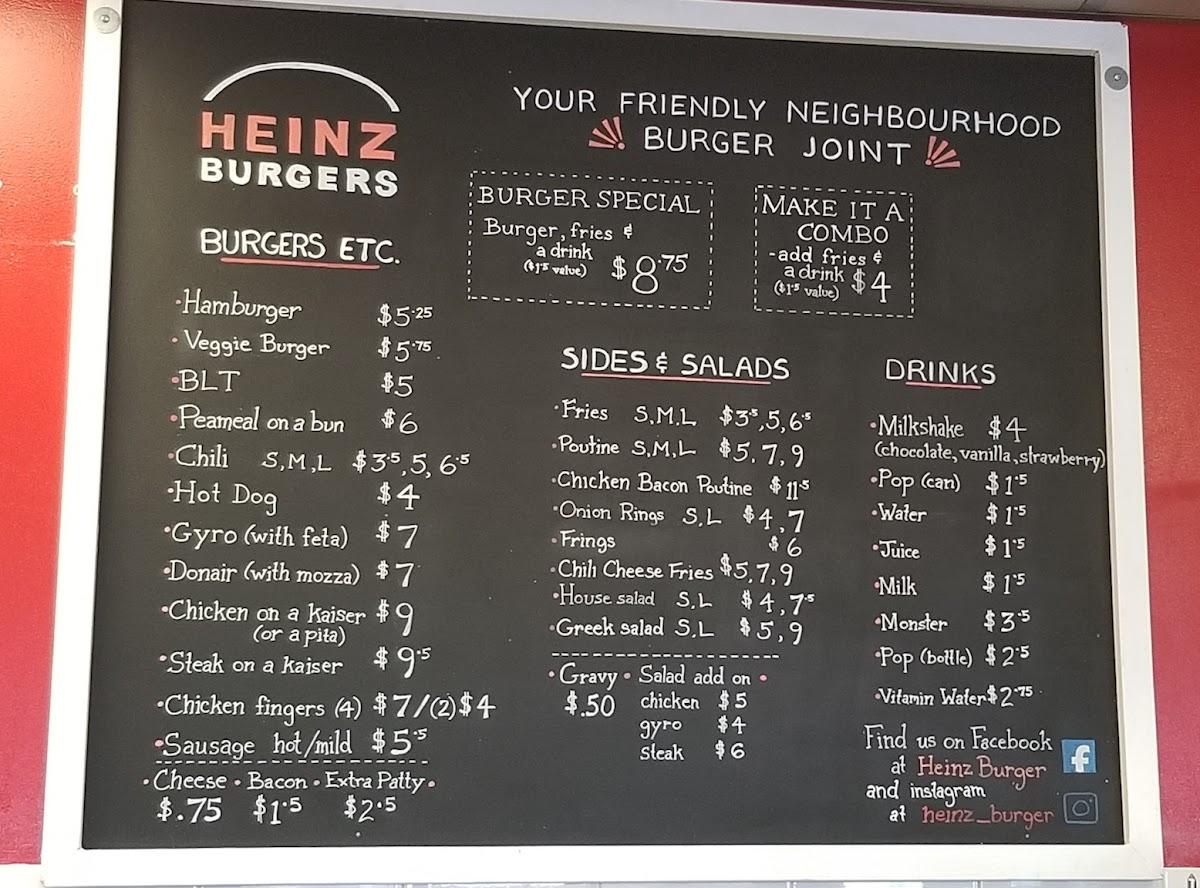 HEINZ
BURGERS
YOUR FRIENDLY NEIGHBOURHOOD
BURGER JOINT
BURGER SPECIAL
Burger, fries &
a drink
($1.5 value) $8.75
MAKE IT A
COMBO
-add fries &
a drink
($1.5 value) $4
BURGERS ETC.
•Hamburger $5.25
•Veggie Burger $5.75
•BLT $5
•Peameal on a bun $6
•Chili S,M,L $3.5,5,6.5
•Hot Dog $4
•Gyro (with feta) $7
•Donair (with mozza) $7
•Chicken on a kaiser $9
(or a pita)
•Steak on a kaiser $9.5
•Chicken fingers (4) $7/(2)$4
•Sausage hot/mild $5.5
•Cheese •Bacon •Extra Patty•
$.75 $1.5 $2.5
SIDES & SALADS
•Fries S,M,L $3.5,5,6.5
•Poutine S,M,L $5,7,9
•Chicken Bacon Poutine $11.5
•Onion Rings S,L $4,7
•Frings $6
•Chili Cheese Fries $5,7,9
•House salad S,L $4,7.5
•Greek salad S,L $5,9
•Gravy •Salad add on•
$.50 chicken $5
gyro $4
steak $6
DRINKS
•Milkshake $4
(chocolate, vanilla, strawberry)
•Pop (can) $1.5
•Water $1.5
•Juice $1.5
•Milk $1.5
•Monster $3.5
•Pop (bottle) $2.5
•Vitamin Water $2.75
Find us on Facebook f
at Heinz Burger
and instagram
at heinz_burger